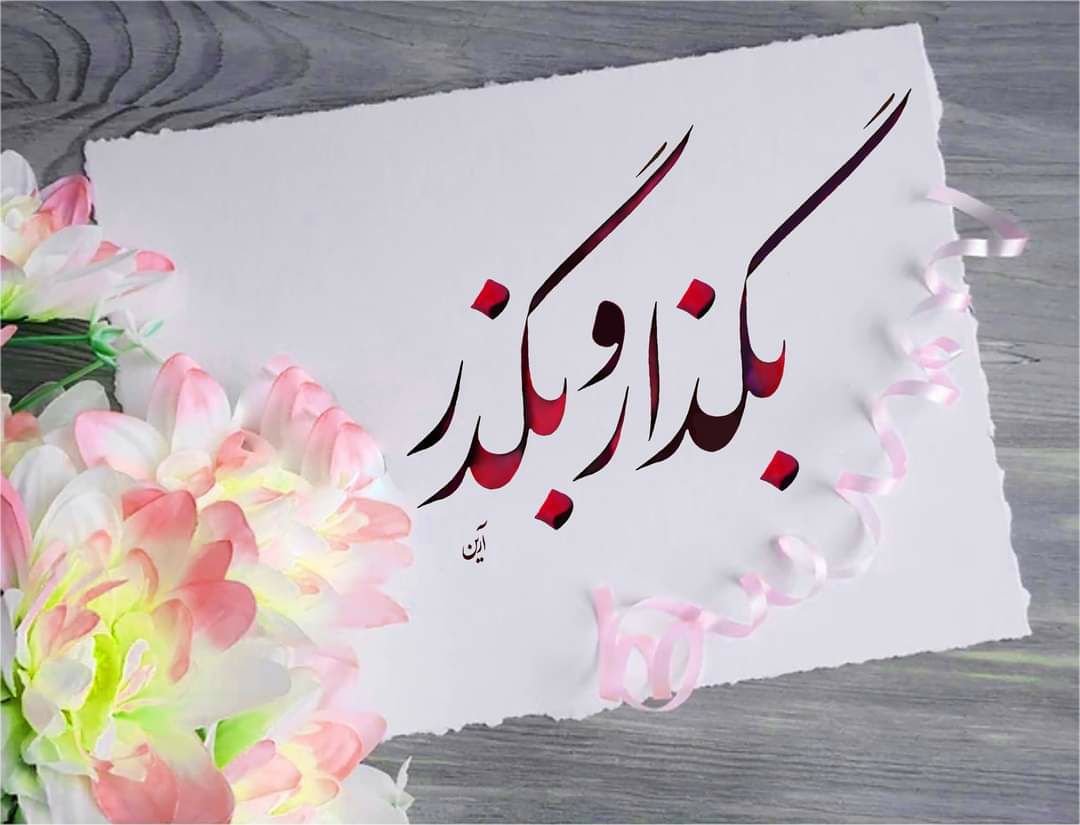 بگذار و بگذر
آرین